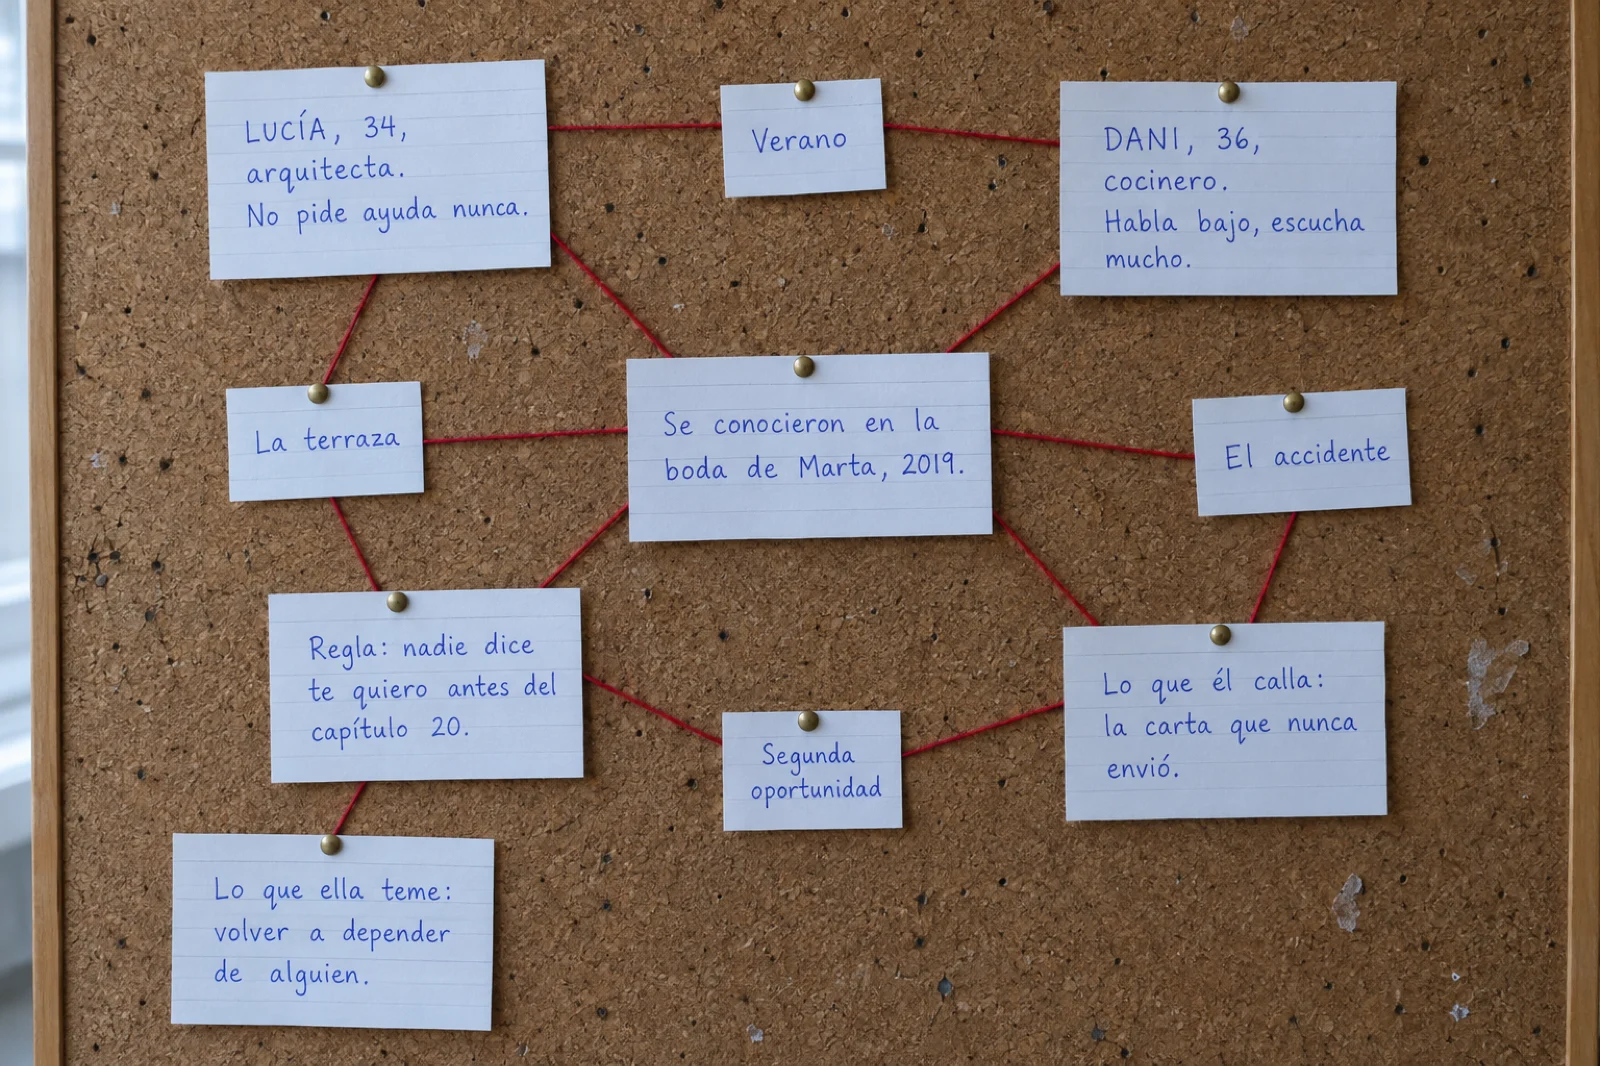 LUCÍA, 34,
arquitecta.
No pide ayuda nunca.
Verano
DANI, 36,
cocinero.
Habla bajo, escucha
mucho.
La terraza
Se conocieron en la
boda de Marta, 2019.
El accidente
Regla: nadie dice
te quiero antes del
capítulo 20.
Segunda
oportunidad
Lo que él calla:
la carta que nunca
envió.
Lo que ella teme:
volver a depender
de alguien.